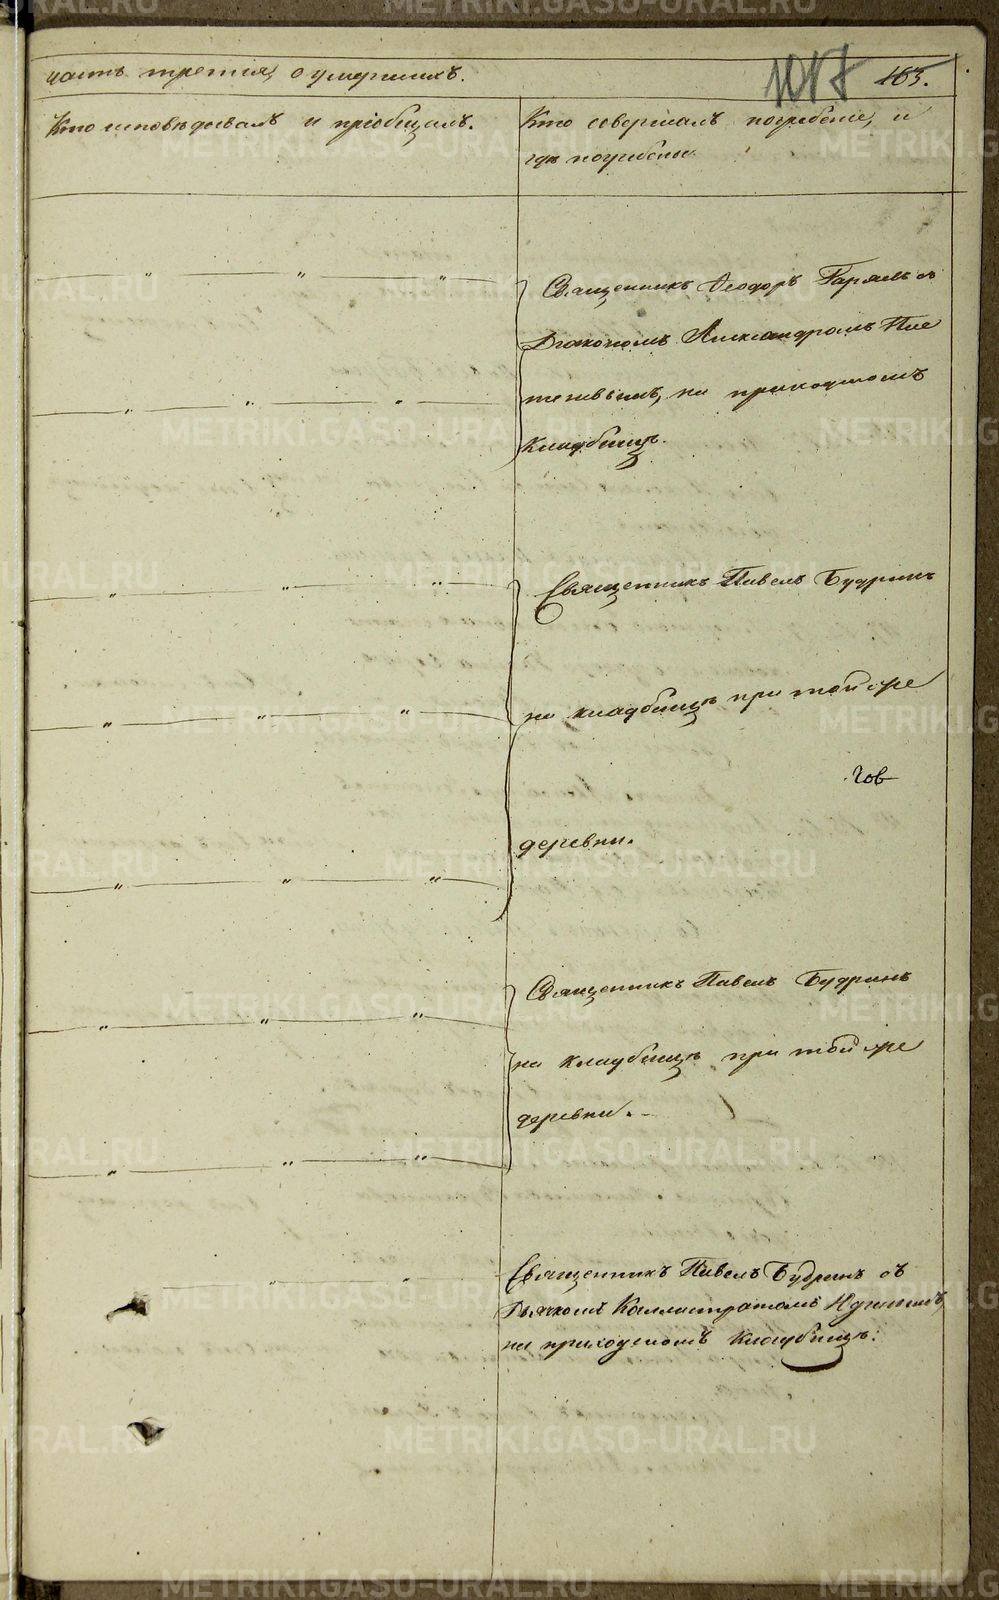 часть третия, о умершихъ.
1017 165.
Кто исповѣдывалъ и пріобщалъ.
Кто совершалъ погребеніе, и
гдѣ погребены.
Священникъ Ѳеодоръ съ
Діакономъ Александромъ Пле
теневымъ, на приходскомъ
кладбищѣ.
Священникъ Павелъ Будринъ
на кладбищѣ при той же
деревни.
Священникъ Павелъ Будринъ
на кладбищѣ при той же
деревни.
Священникъ Павелъ Будринъ съ
Дьячкомъ Каллистратомъ
на приходскомъ кладбищѣ.
METRIKI.GASO-URAL.RU